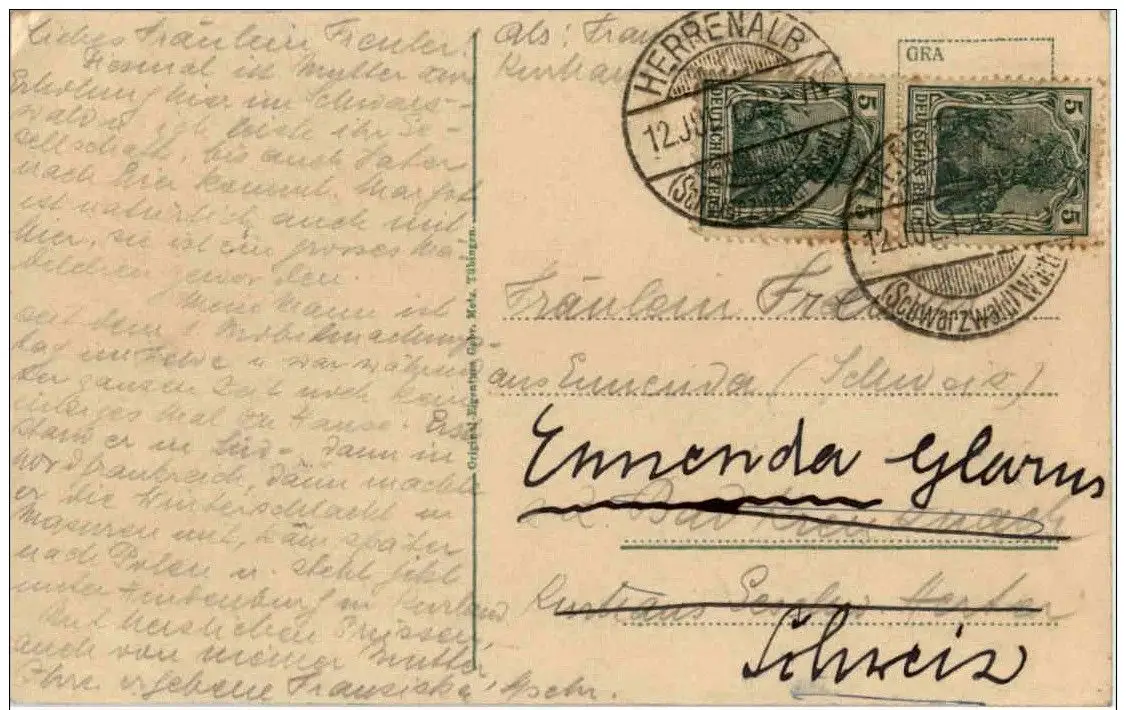 Liebes Fräulein Freuler.
Diesmal ist Mutter zur
Erholung hier im Schwarz-
wald u. ich leiste ihr Ge-
sellschaft, bis auch Vater
nach hier kommt. Margot
ist natürlich auch mit
hier, sie ist ein grosses Mä-
delchen geworden.
Mein Mann ist
seit dem 1. Mobilmachungs-
tag im Felde u. war während
der ganzen Zeit noch kein
einziges Mal zu Hause. Erst
stand er in Süd- dann in
Nordfrankreich, dann machte
er die Winterschlacht in
Masuren mit, kam später
nach Polen u. steht jetzt
unter Hindenburg in Kurland
Mit herzlichen Grüssen
auch von meiner Mutter
Ihre ergebene Franziska
Original-Eigentum Gebr. Metz, Tübingen.
Abs: Frau
Kurhaus
HERRENALB
12.JUL
(Schwarzwald
12.JUL
(Schwarzwald) Württ
5 DEUTSCHES REICH 5
5 DEUTSCHES REICH 5
GRA
Fräulein
aus Ennenda (Schweiz)
Ennenda Glarus
Bad
Kurhaus
Schweiz